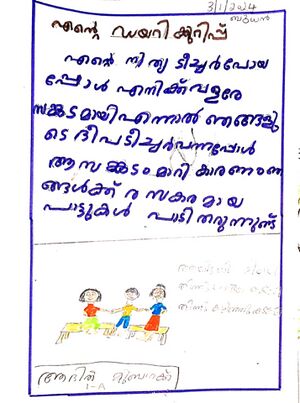 3/1/2024
ബുധൻ
എന്റെ ഡയറിക്കുറിപ്പ്
എന്റെ നിത്യ ടീച്ചർപോയ
പ്പോൾ എനിക്ക് വളരേ
സങ്കടമായി എന്നാൽ ഞങ്ങളു
ടെ ദീപടീച്ചർവന്നപ്പോൾ
ആ സങ്കടം മാറി കാരണം ഞ
ങ്ങൾക്ക് രസകരമായ
പാട്ടുകൾ പാടി തരുന്നുണ്ട്
ആദിത്
1-A